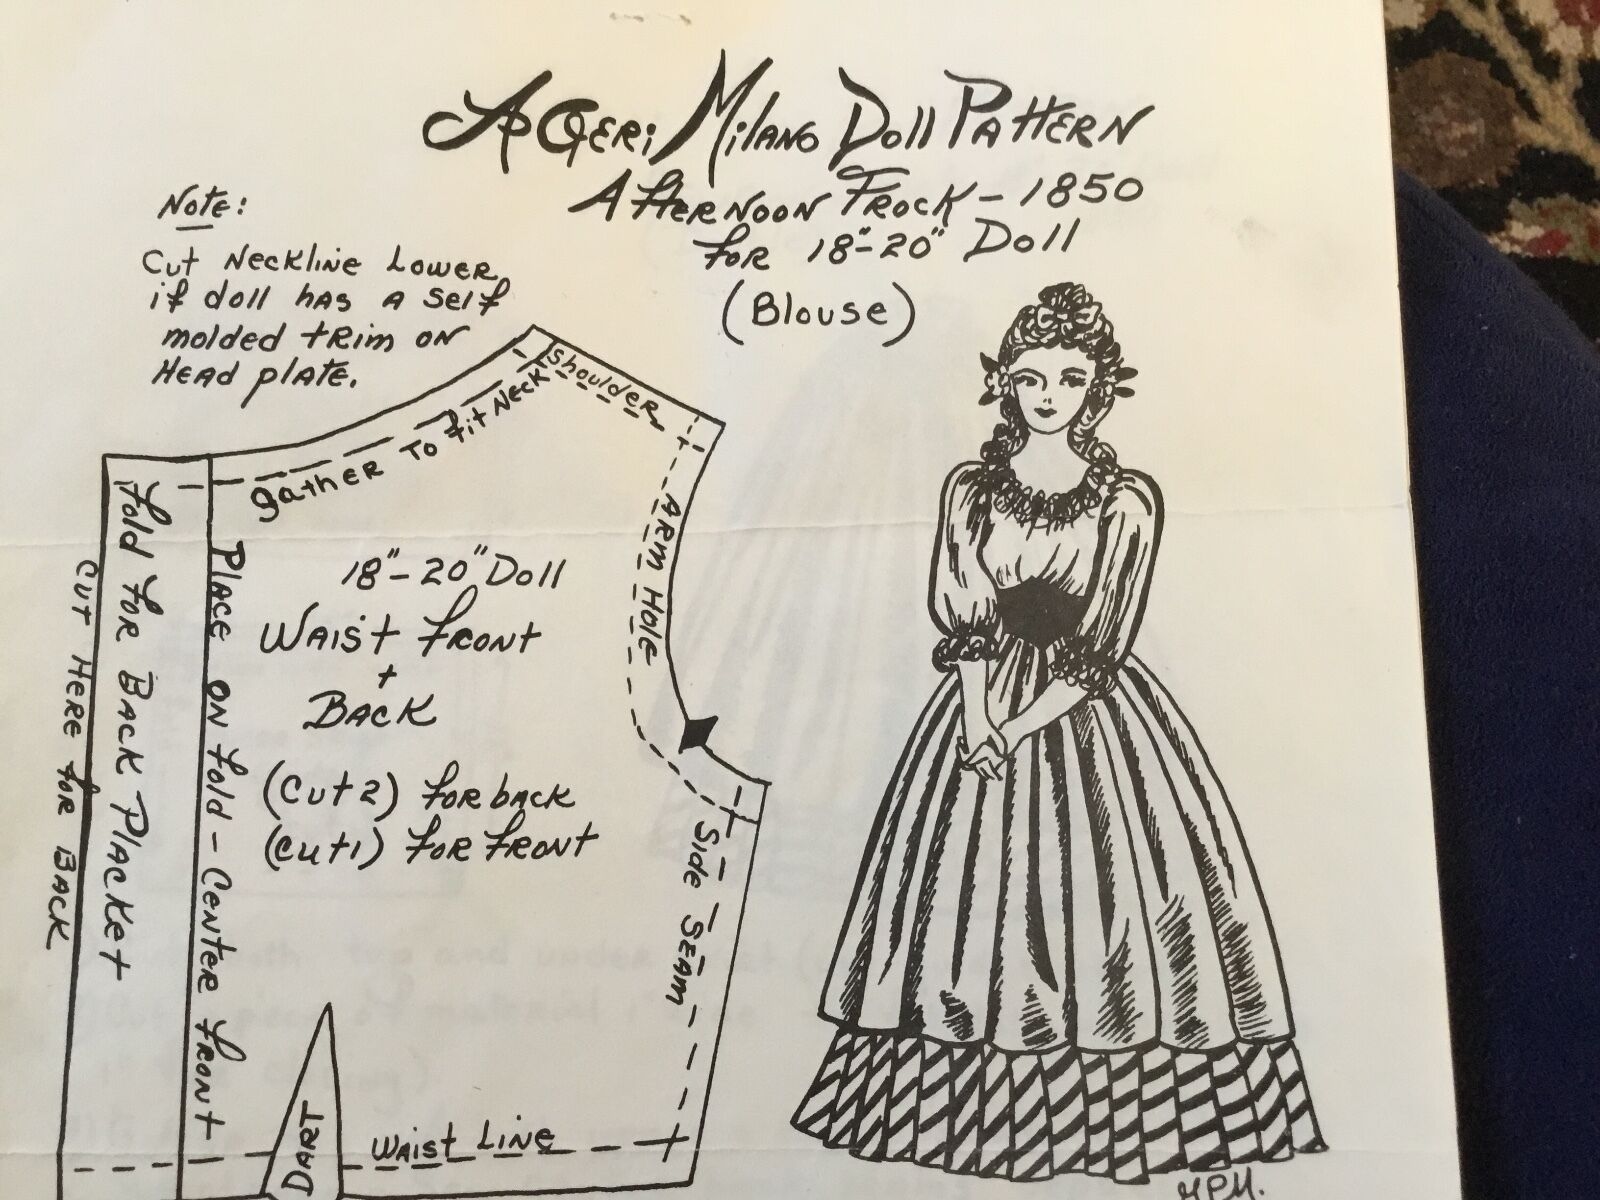 A Geri Milano Doll Pattern
Afternoon Frock - 1850
for 18"-20" Doll
(Blouse)
Note:
Cut Neckline Lower
if doll has a self
molded trim on
Head plate.
Shoulder
Gather To fit Neck
Arm Hole
18"-20" Doll
Waist Front
+
Back
(Cut 2) for back
(Cut 1) for front
Fold for Back Placket
Cut Here for Back
Place on fold - Center Front
Side Seam
Dart
Waist Line
G.P.M.